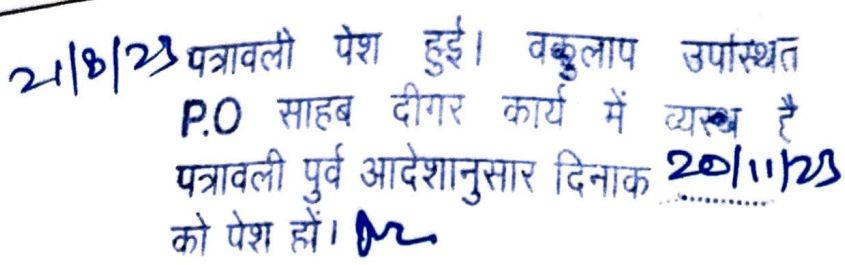 21/8/23 पत्रावली पेश हुई। वकुलाप उपस्थित
P.O साहब दीगर कार्य में व्यस्थ है
पत्रावली पुर्व आदेशानुसार दिनाक 20/11/23
को पेश हों।